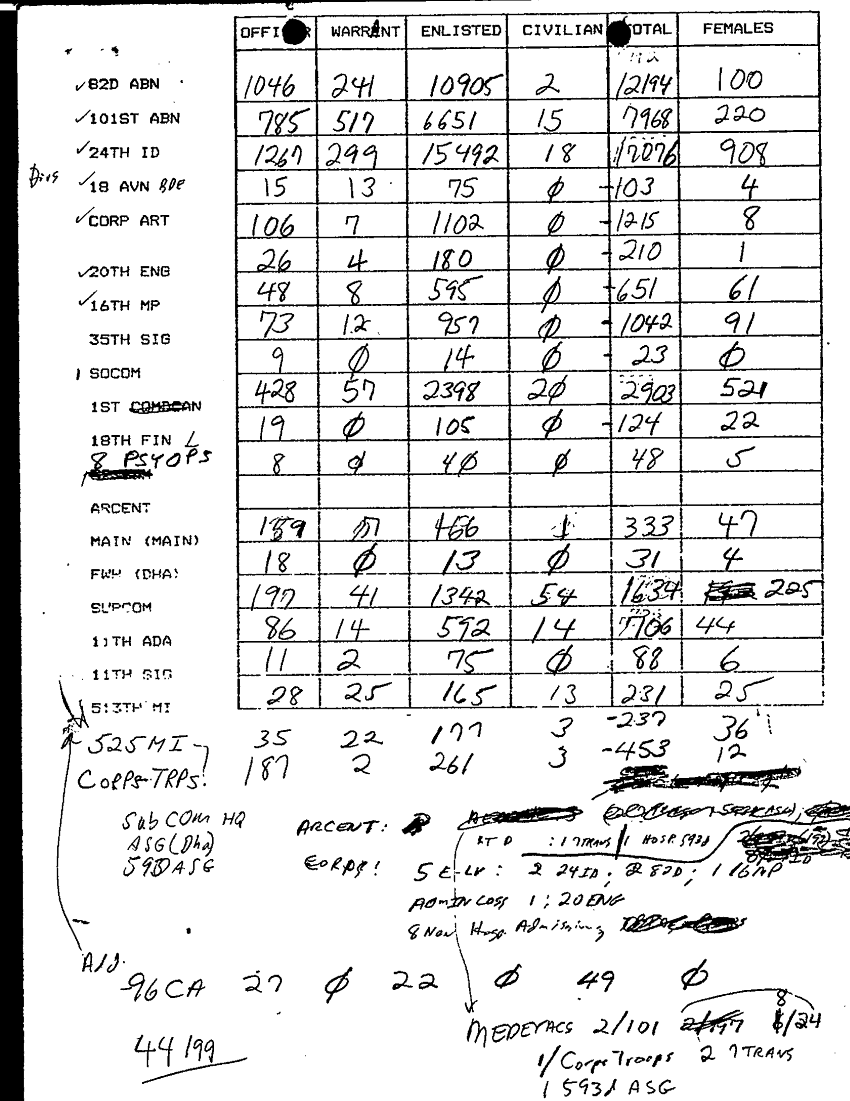 OFFICER WARRANT ENLISTED CIVILIAN TOTAL FEMALES
✓82D ABN 1046 241 10905 2 12194 100
✓101ST ABN 785 517 6651 15 7968 220
✓24TH ID 1267 299 15492 18 17076 908
✓18 AVN BDE 15 13 75 Ø -103 4
✓CORP ART 106 7 1102 Ø -1215 8
✓20TH ENG 26 4 180 Ø -210 1
✓16TH MP 48 8 595 Ø -651 61
35TH SIG 73 12 957 Ø -1042 91
1 SOCOM 9 Ø 14 Ø -23 Ø
1ST 428 57 2398 20 2903 521
18TH FIN 19 Ø 105 Ø -124 22
8 PSYOPS 8 Ø 40 Ø 48 5
ARCENT
MAIN (MAIN) 466 1 333 47
FWH (DHA) 18 Ø 13 Ø 31 4
SUPCOM 197 41 1342 54 1634 225
11TH ADA 86 14 592 14 706 44
11TH SIG 11 2 75 Ø 88 6
513TH MI 28 25 165 13 231 25
525 MI 35 22 177 3 -237 36
CORPS TRPS: 187 2 261 3 -453 12
SubCOM HQ
ARCENT:
ASG (Dha)
RTD : 17TRANS 1 HOSP. 593d
593 ASG
CORPS: 5 E-LV : 2 24ID; 2 82D; 1 16MP
ADMIN LOSS 1; 20 ENG
8 Non Hosp. Admissions
Add.
96CA 27 Ø 22 Ø 49 Ø
8
MEDEVACS 2/101 /24
44199
1/Corps Troops 2 7TRANS
1 593d ASG